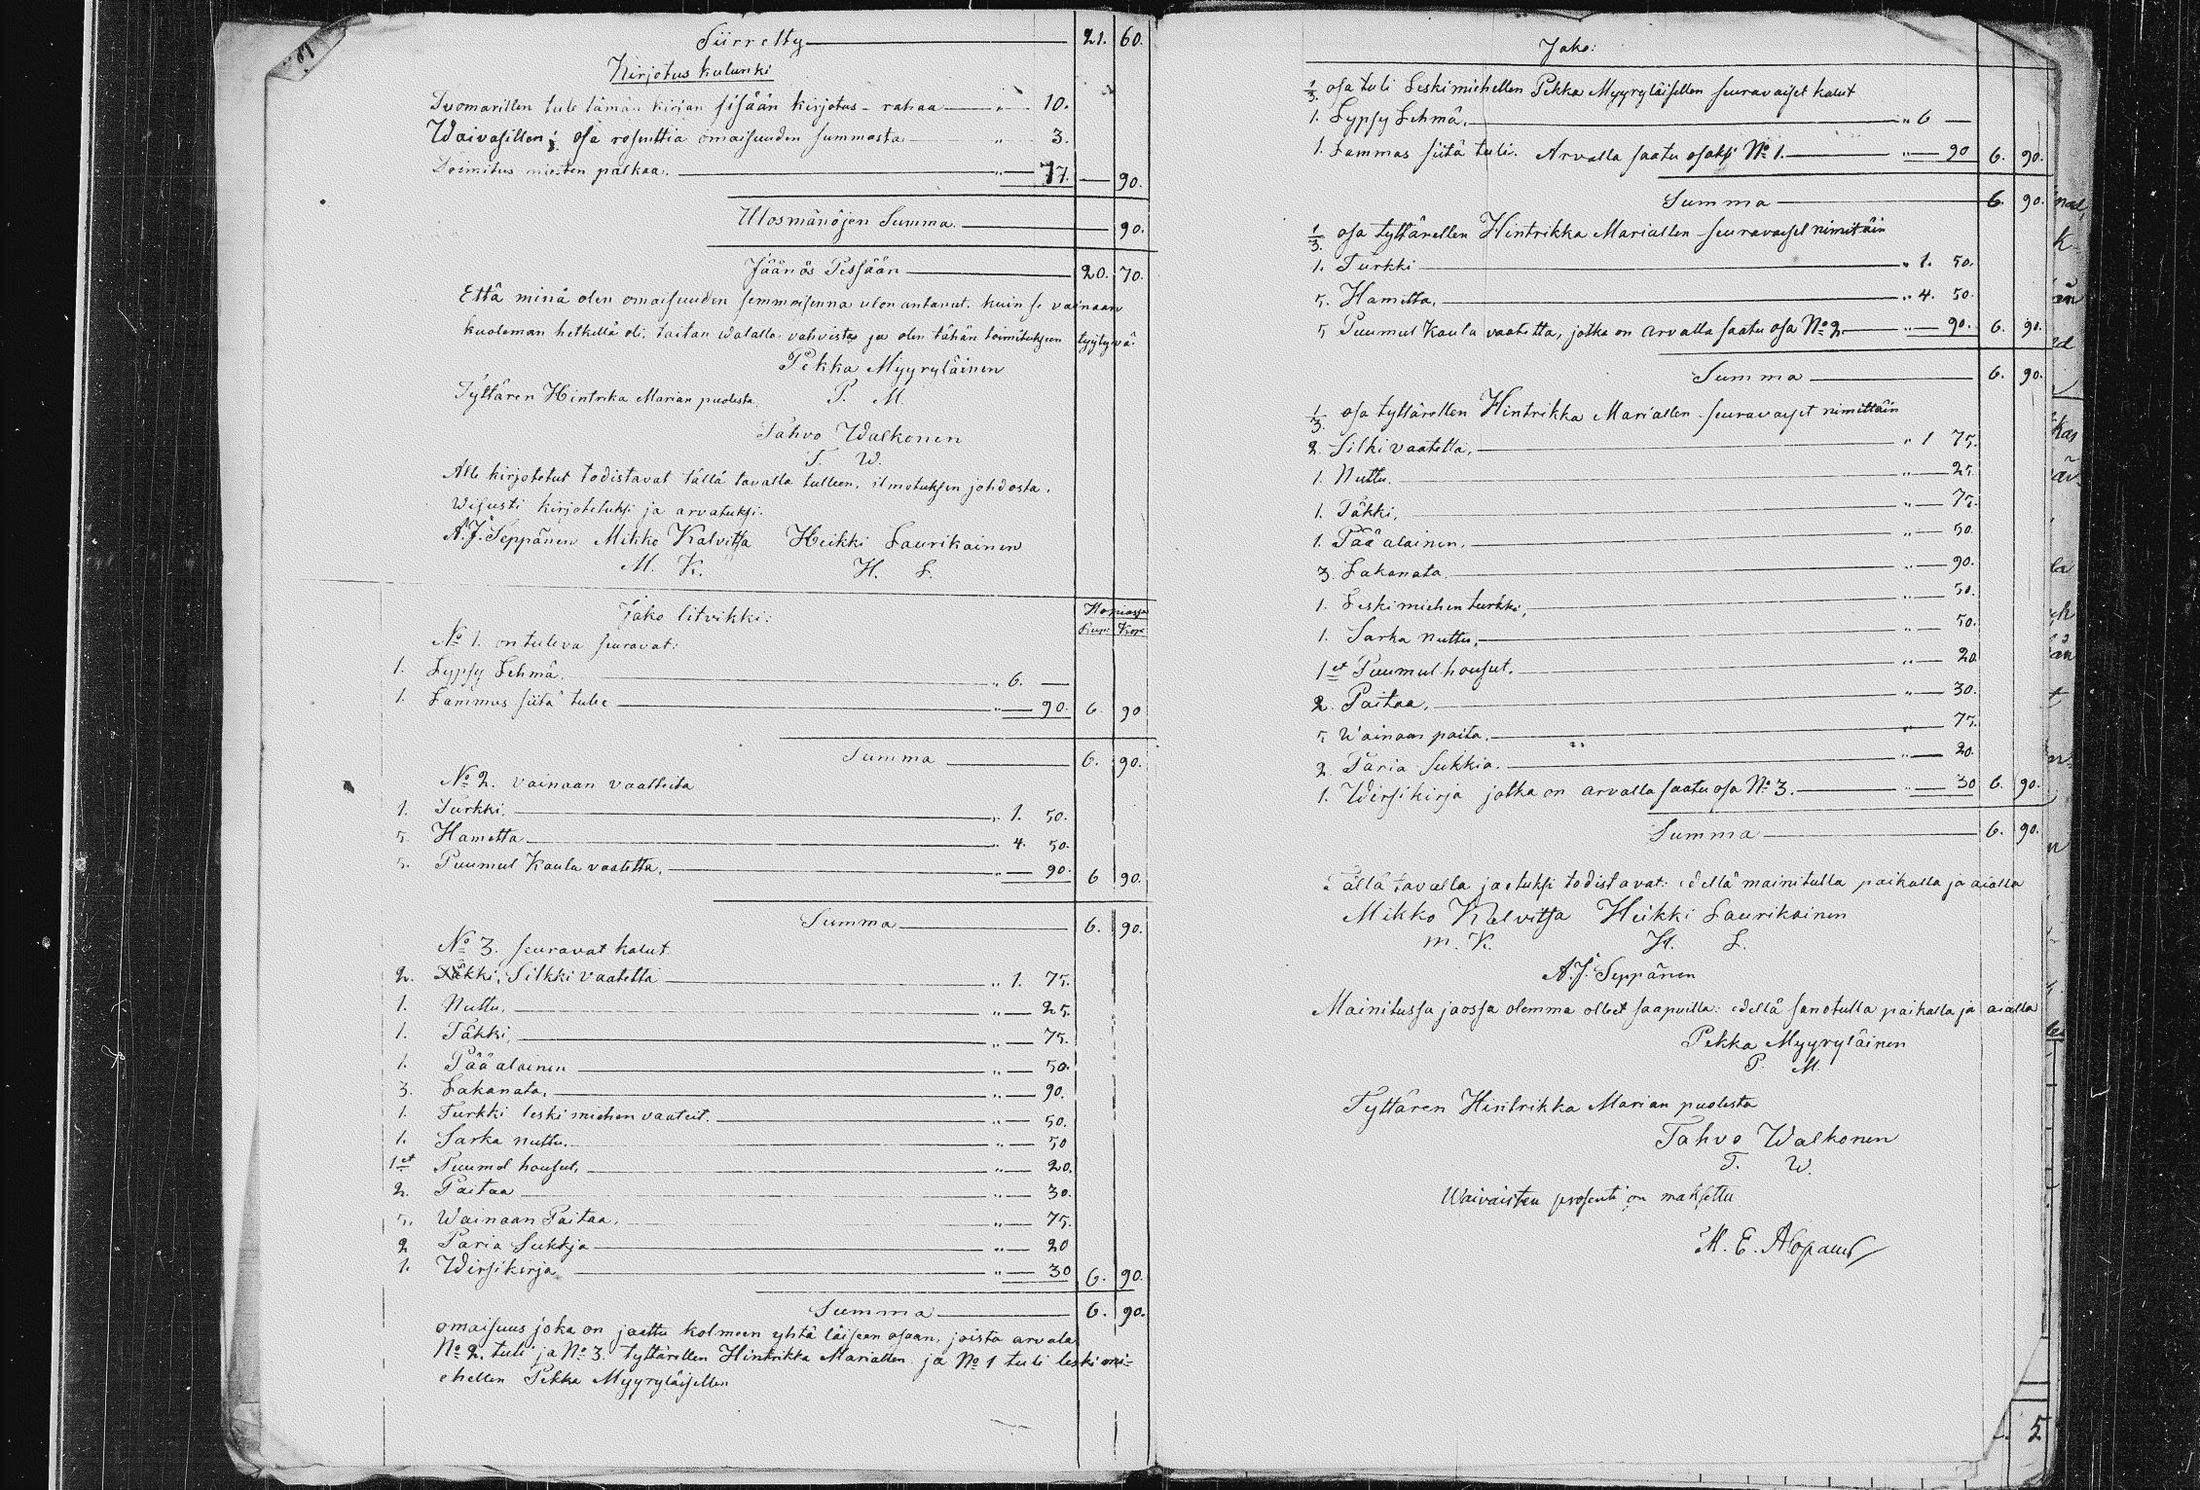 Siirretty 21. 60.
Kirjotus kulunki
Tuomarillen tule tämän kirjan sisään kirjotus-rahaa „ 10.
Waivasillen ⅛ osa rosenttia omaisuuden summasta „ 3.
Toimitus miesten palkaa. „ — 77. — 90.
Ulosmänöjen Summa 90.
Jäänös Pessään 20. 70.
Että minä olen omaisuuden semmoisenna ulon antanut. kuin se vainaan
kuoleman hetkellä oli, taitan walalla vahvistaa ja olen tähän toimitukseen tyytyvä.
Pekka Myyryläinen
P. M.
Tyttären Hintrika Marian puolesta
Tahvo Walkonen
T. W.
Alle kirjotetut todistavat tällä tavalla tulleen, ilmotuksen johdosta.
Wisusti kirjotetuksi ja arvatuksi.
A.J. Seppänen Mikko Kalvitsa Heikki Laurikainen
M. K. H. L.
Jako litvikki:
Hopiassa
Rup. Kop.
No 1. on tuleva seuravat:
1. Lypsy Lehmä. „ 6. —
1. Lammas siitä tulee „ — 90. 6. 90
Summa 6. 90.
No 2. vainaan vaatteita
1. Turkki. „ 1. 50.
5. Hametta „ 4. 50.
5. Puumul Kaula vaatetta. „ — 90. 6 90.
Summa 6. 90.
No 3. seuravat kalut
2. Silkki vaatetta „ 1. 75.
1. Nuttu. „ — 25.
1. Täkki, „ — 75.
1. Pää alainen „ — 50.
3. Lakanata. „ — 90.
1. Turkki leski miehen vaateit. „ — 50.
1. Sarka nuttu. „ — 50
1et Puumul housut, „ — 20.
2. Paitaa „ — 30.
5. Wainaan Paitaa. „ — 75.
2 Paria Sukkja „ — 20
1. Wirsikirja „ — 30 6. 90.
Summa 6. 90.
omaisuus joka on jaettu kolmeen yhtä läiseen osaan, joista arvalla
No 2. tuli ja No 3. tyttärellen Hintrikka Mariallen ja No 1 tuli leski mi-
ehellen Pekka Myyryläisellen
Jako:
⅓. osa tuli Leskimiehellen Pekka Myyryläisellen seuravaiset kalut
1. Lypsy Lehmä. „ 6 —
1. Lammas siitä tuli. Arvalla saatu osaksi No 1. „ — 90 6. 90.
Summa 6. 90.
⅓. osa tyttärellen Hintrikka Mariallen seuravaiset nimitäin
1. Turkki „ 1. 50.
5. Hametta. „ 4. 50.
5 Puumul Kaula vaatetta, jotka on arvalla saatu osa No 2. „ — 90. 6. 90.
Summa 6. 90.
⅓. osa tyttärellen Hintrikka Mariallen seuravaiset nimittäin
2. Silki vaatetta. „ 1 75.
1. Nuttu. „ — 25.
1. Täkki, „ — 75.
1. Pää alainen. „ — 50.
3. Lakanata. „ — 90.
1. Leskimiehen turkki, „ — 50.
1. Sarka nuttu, „ — 50.
1et Puumul housut. „ — 20
2. Paitaa. „ — 30.
5 Wainaan paita. „ — 75.
2. Paria Sukkia. „ — 20.
1. Wirsikirja jotka on arvalla saatu osa No 3. „ — 30 6. 90.
Summa 6. 90.
Tällä tavalla jaetuksi todistavat: edellä mainitulla paikalla ja aialla
Mikko Kalvitsa Heikki Laurikainen
m. K. H. L.
A.J. Seppänen
Mainitussa jaossa olemma olleet saapuilla: edellä sanotulla paikalla ja aialla
Pekka Myyryläinen
P. M.
Tyttären Hintrikka Marian puolesta
Tahvo Walkonen
T. W.
Waivaisten prosenti on maksettu
M. E.
5